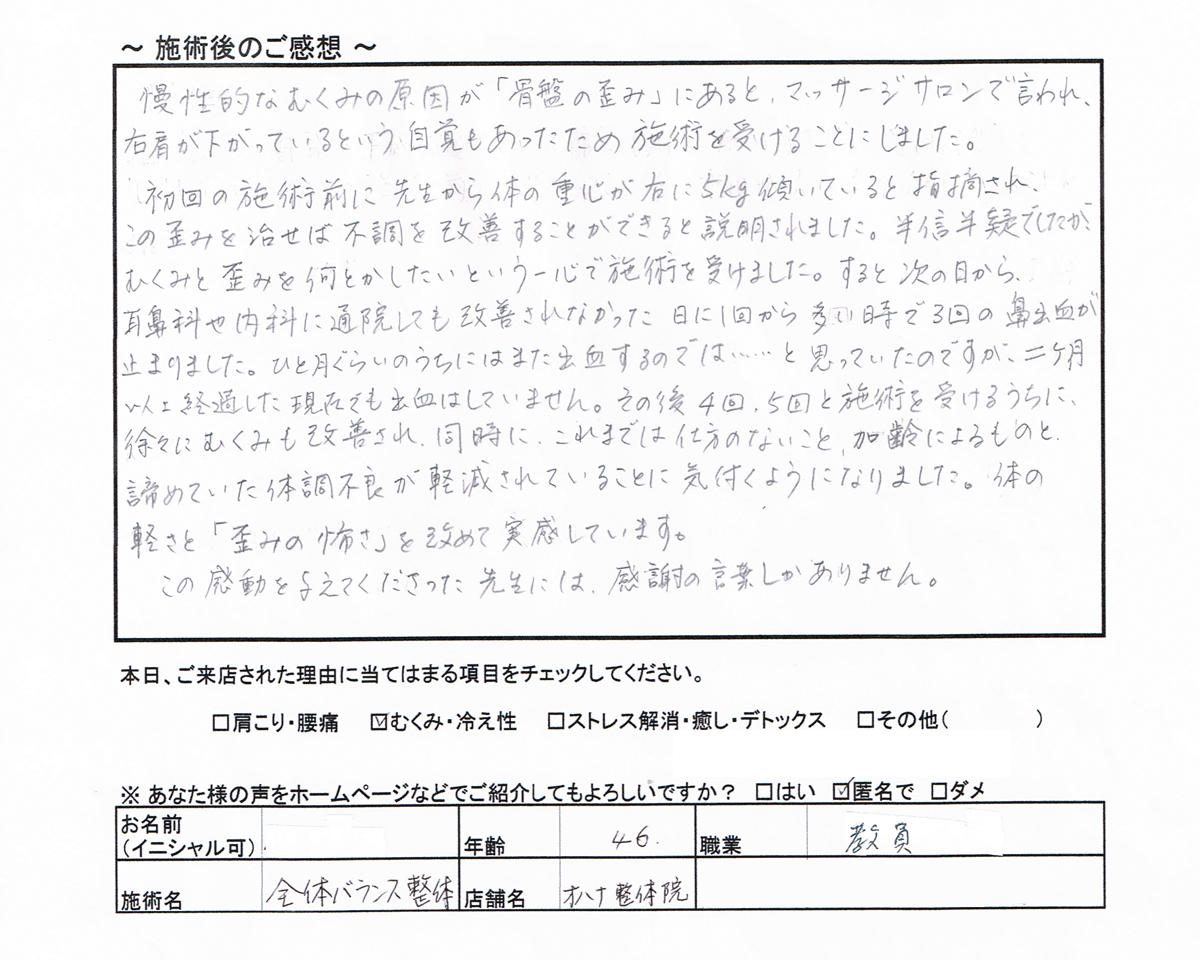 ～ 施術後のご感想 ～
慢性的なむくみの原因が「骨盤の歪み」にあると、マッサージサロンで言われ、
右肩が下がっているという自覚もあったため施術を受けることにしました。
初回の施術前に先生から体の重心が右に5kg傾いていると指摘され、
この歪みを治せば不調を改善することができると説明されました。半信半疑でしたが、
むくみと歪みを何とかしたいという一心で施術を受けました。すると次の日から、
耳鼻科や内科に通院しても改善されなかった日に1回から多い時で3回の鼻出血が
止まりました。ひと月ぐらいのうちにはまた出血するのでは……と思っていたのですが、二ヶ月
以上経過した現在でも出血はしていません。その後4回、5回と施術を受けるうちに、
徐々にむくみも改善され、同時に、これまでは仕方のないこと、加齢によるものと、
諦めていた体調不良が軽減されていることに気付くようになりました。体の
軽さと「歪みの怖さ」を改めて実感しています。
この感動を与えてくださった先生には、感謝の言葉しかありません。
本日、ご来店された理由に当てはまる項目をチェックしてください。
□肩こり・腰痛 ☑むくみ・冷え性 □ストレス解消・癒し・デトックス □その他( )
※ あなた様の声をホームページなどでご紹介してもよろしいですか？ □はい ☑匿名で □ダメ
お名前
(イニシャル可) 年齢 46. 職業 教員
施術名 全体バランス整体 店舗名 オハナ整体院